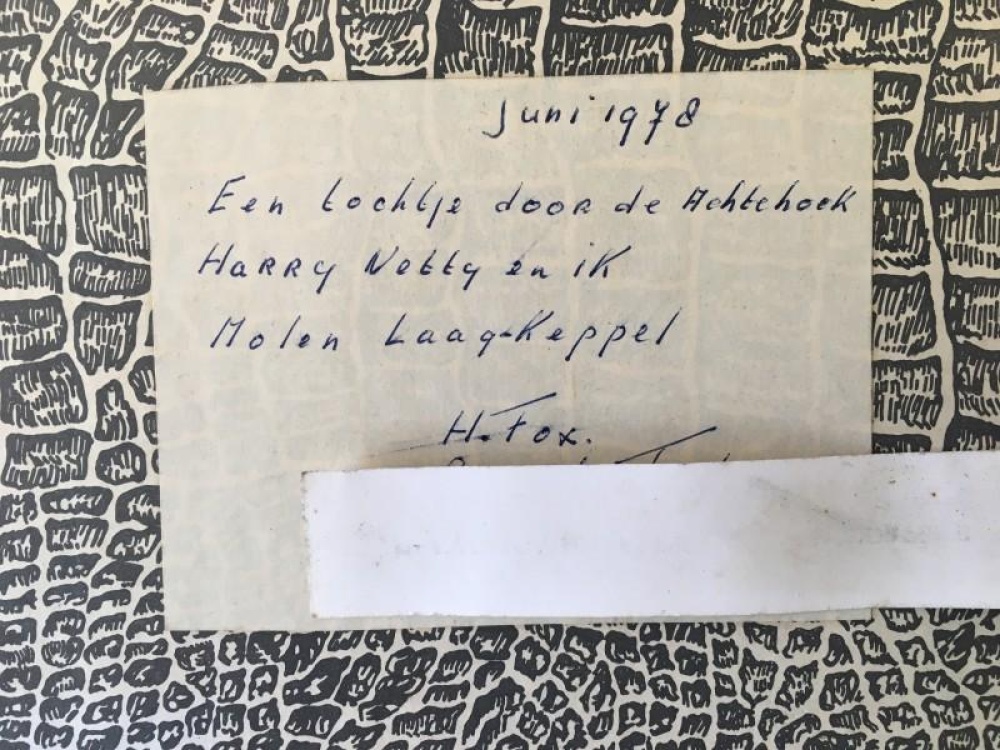 Juni 1978
Een tochtje door de Achtehoek
Harry Netty en ik
Molen Laag-Keppel
H. Fox.